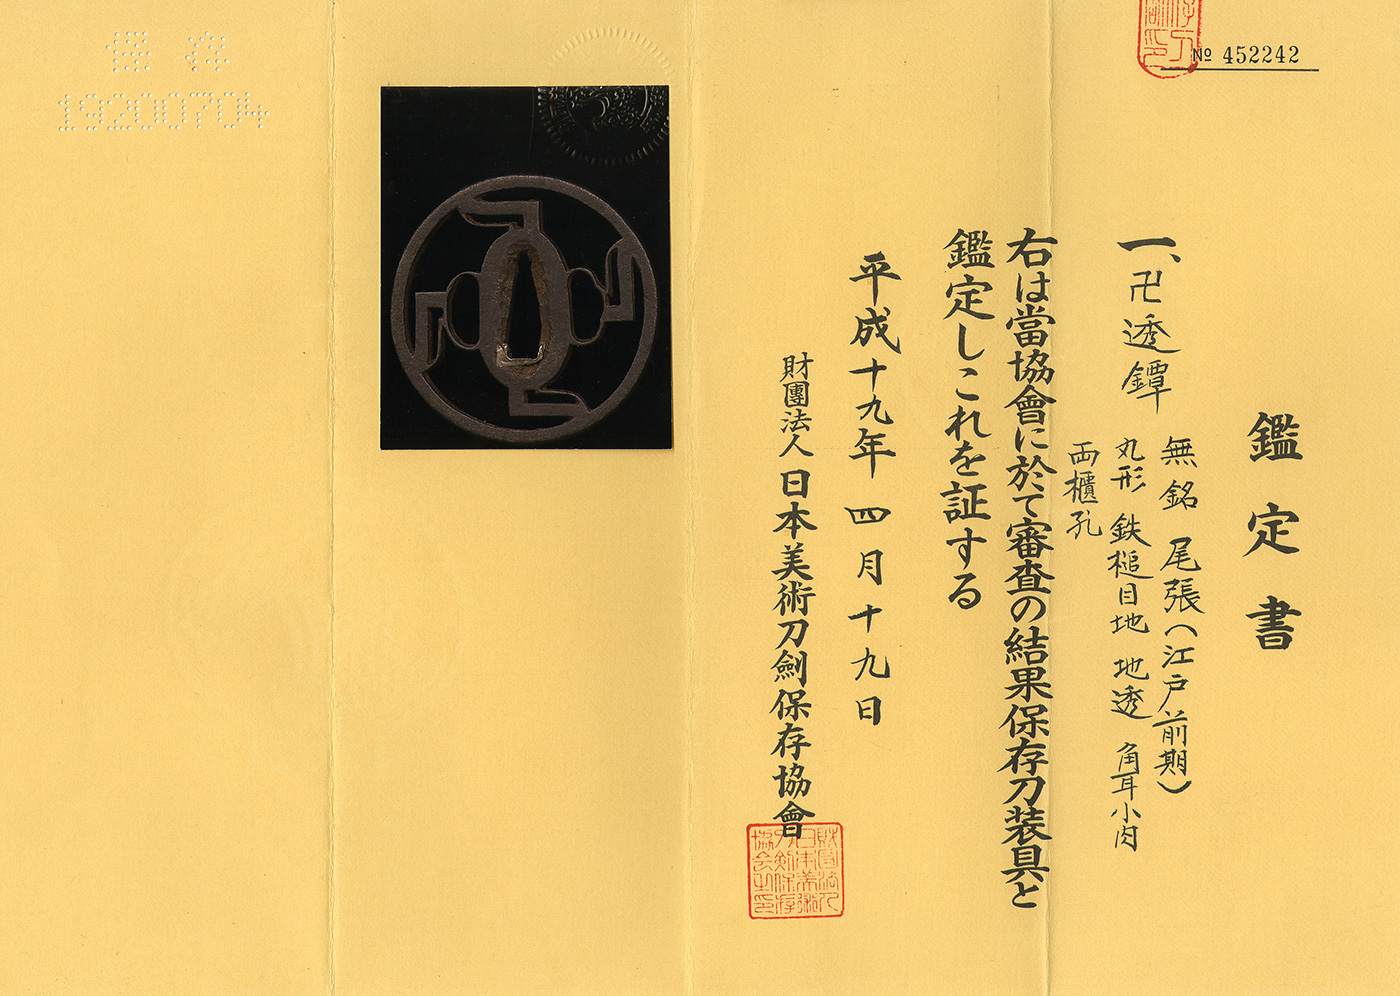 № 452242
鑑定書
一、卍透鐔
無銘 尾張（江戸前期）
丸形 鉄槌目地 地透 角耳小肉
両櫃孔
右は當協會に於て審査の結果保存刀装具と
鑑定しこれを証する
平成十九年四月十九日
財團法人日本美術刀劍保存協會
保存
19200704